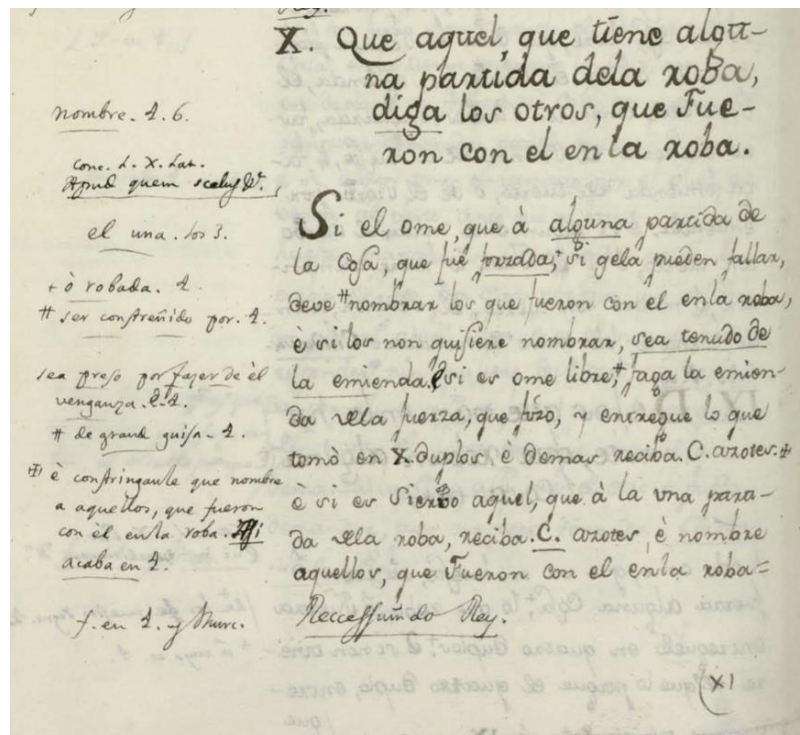 X. Que aquel, que tiene algu-
na partida dela roba,
diga los otros, que Fue-
ron con el en la roba.
Si el ome, que à alguna partida de
la Cosa, que fué forzada,+ si gela pueden fallar,
deve # nombrar los que fueron con el enla roba,
è si los non quisiere nombrar, sea tenudo de
la emienda. E si es ome libre,# faga la emien-
da della fuerza, que fizo, y entregue lo que
tomò en X. duplos è demas reciba. C. azotes.
è si es Siervo aquel, que à la una para-
da della roba, reciba. C. azotes, è nombre
aquellos, que Fueron con el enla roba=
Reccessuindo Rey.
nombre. 1. 6.
conc. L. X. Lat.
Apud quem scelus &c.
el una. los 3.
+ ò robada. 1.
# ser constreñido por. 1.
sea preso por fazer de él
venganza. 1.
# de grand guisa. 1.
è constringanle que nombre
a aquellos, que fueron
con èl enla roba. Assi
acaba en 1.
f. en 1. y Murc.
(XI